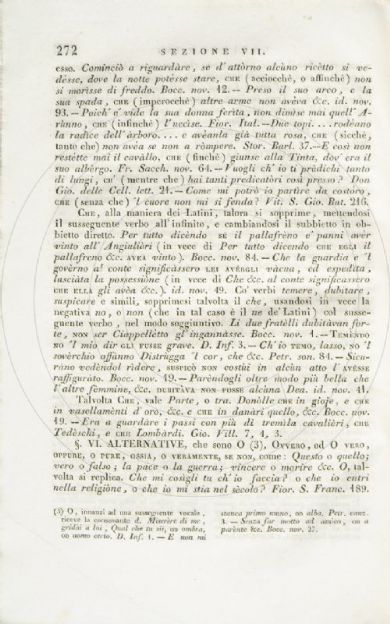 272 SEZIONE VII.
esso. Cominciò a riguardàre, se d'attòrno alcùno ricètto si ve-
désse, dove la notte potésse stare, CHE (acciocchè, o affinchè) non
si morìsse di freddo. Bocc. nov. 12. — Preso il suo arco, e la
sua spada, CHE (imperocchè) altre arme non avéva &c. id. nov.
93. — Poich' e' vide la sua donna ferìta, non dimìse mai quell' A-
rùnno, CHE (infinchè) l'uccìse. Fior. Ital. — Due topi... rodéano
la radìce dell'àrboro.... e avéanla già tutta rosa, CHE (sicchè,
tanto che) non avéa se non a ròmpere. Stor. Barl. 37. — E così non
restètte mai il cavàllo, CHE (finchè) giunse alla Tinta, dov' era il
suo albèrgo. Fr. Sacch. nov. 64. — Vuogli ch'io ti prèdichi tanto
di lungi, CH' (mentre che) hai tanti predicatòri così presso? Don
Gio. delle Cell. lett. 24. — Come mi potrò io partìre da costoro,
CHE (senza che) 'l cuore non mi si fenda? Vit. S. Gio. Bat. 216.
CHE, alla maniera dei Latini, talora si sopprime, mettendosi
il susseguente verbo all'infinito, e cambiandosi il subbietto in ob-
bietto diretto. Per tutto dicèndo se il pallafréno e' panni aver
vinto all'Angiulièri (in vece di Per tutto dicendo CHE EGLI il
pallafreno &c. AVEA vinto). Bocc. nov. 84. — Che la guardia e 'l
govèrno al conte significàssero LEI AVÉRGLI vàcua, ed espedìta,
lasciàta la possessióne (in vece di Che &c. al conte significassero
CHE ELLA gli avéa &c.), id. nov. 49. Co' verbi temere, dubitare,
suspicare e simili, sopprimesi talvolta il che, usandosi in vece la
negativa no, o non (che in tal caso è il ne de' Latini) col susse-
guente verbo, nel modo soggiuntivo. Li due fratèlli dubitàvan for-
te, NON SER Ciappellétto gl'ingannàsse. Bocc. nov. 1. — TEMENDO
NO 'l mio dir GLI FUSSE grave. D. Inf. 3. — Ch'io TEMO, lasso, NO 'l
sovèrchio affànno DISTRUGGA 'l cor, che &c. Petr. son. 84. — Sicu-
ràno vedèndol rìdere, SUSPICÒ NON COSTÙI in alcùn atto L'AVÉSSE
raffiguràto. Bocc. nov. 19. — Paréndogli oltre modo più bella che
l'altre femmine, &c. DUBITÀVA NON FOSSE alcùna Dea. id. nov. 41.
Talvolta CHE, vale Parte, o tra. Donòlle CHE in gioje, e CHE
in vasellaménti d'oro, &c. e CHE in danàri quello, &c. Bocc. nov.
19. — Era a guardàre i passi con più di tremìla cavalièri, CHE
Tedèschi, e CHE Lombàrdi. Gio. Vill. 7, 4, 3.
§. VI. ALTERNATIVE, che sono O (3), OVVERO, OD O VERO,
OPPURE, O PURE, OSSIA, O VERAMENTE, SE NON, come: Questo o quello;
vero o falso; la pace o la guerra; vìncere o morìre &c. O, tal-
volta si replica. Che mi cosìgli tu ch'io faccia? o che io entri
nella religióne, o che io mi stia nel sècolo? Fior. S. Franc. 189.
(3) O, innanzi ad una susseguente vocale,
riceve la consonante d. Miserère di me,
gridài a lui, Qual che tu sii, od ombra,
od uomo certo. D. Inf. 1. — E non mi